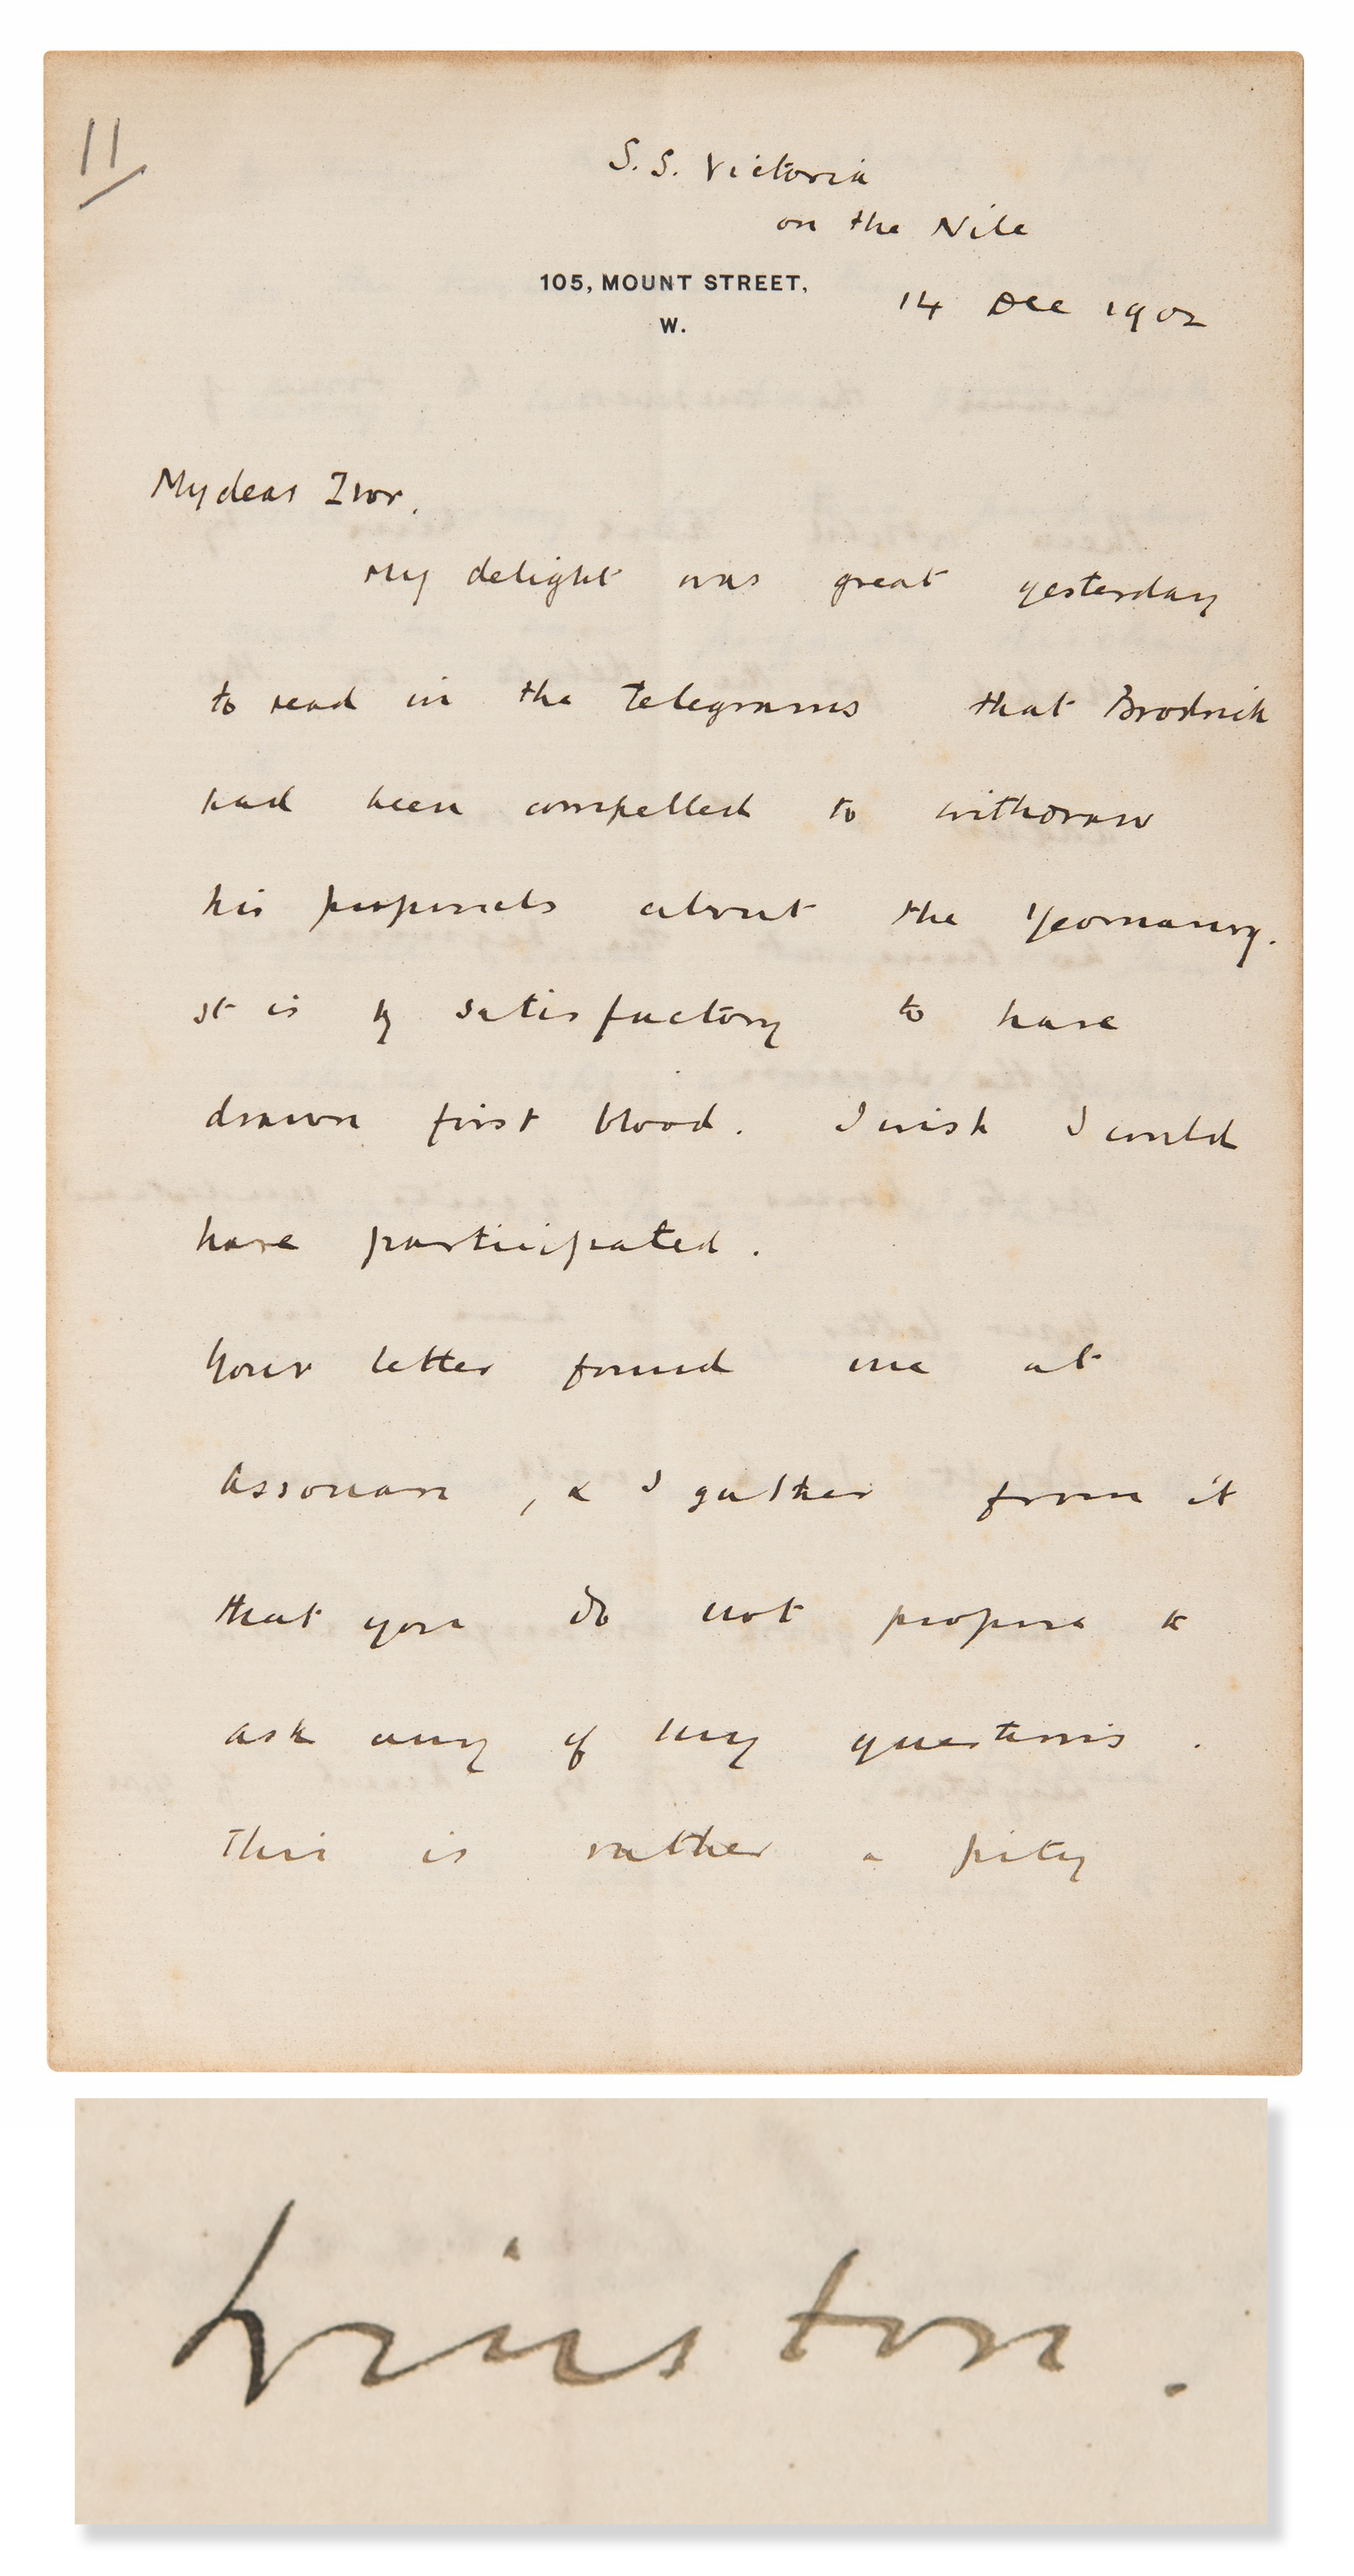 11
S.S. Victoria
on the Nile
105, MOUNT STREET,
W.
14 Dec 1902
My dear Ivor,
My delight was great yesterday
to read in the telegrams that Brodrick
had been compelled to withdraw
his proposals about the Yeomanry.
It is satisfactory to have
drawn first blood. I wish I could
have participated.
Your letter found me at
Assouan, & I gather from it
that you do not propose to
ask any of my questions.
This is rather a pity
Winston.